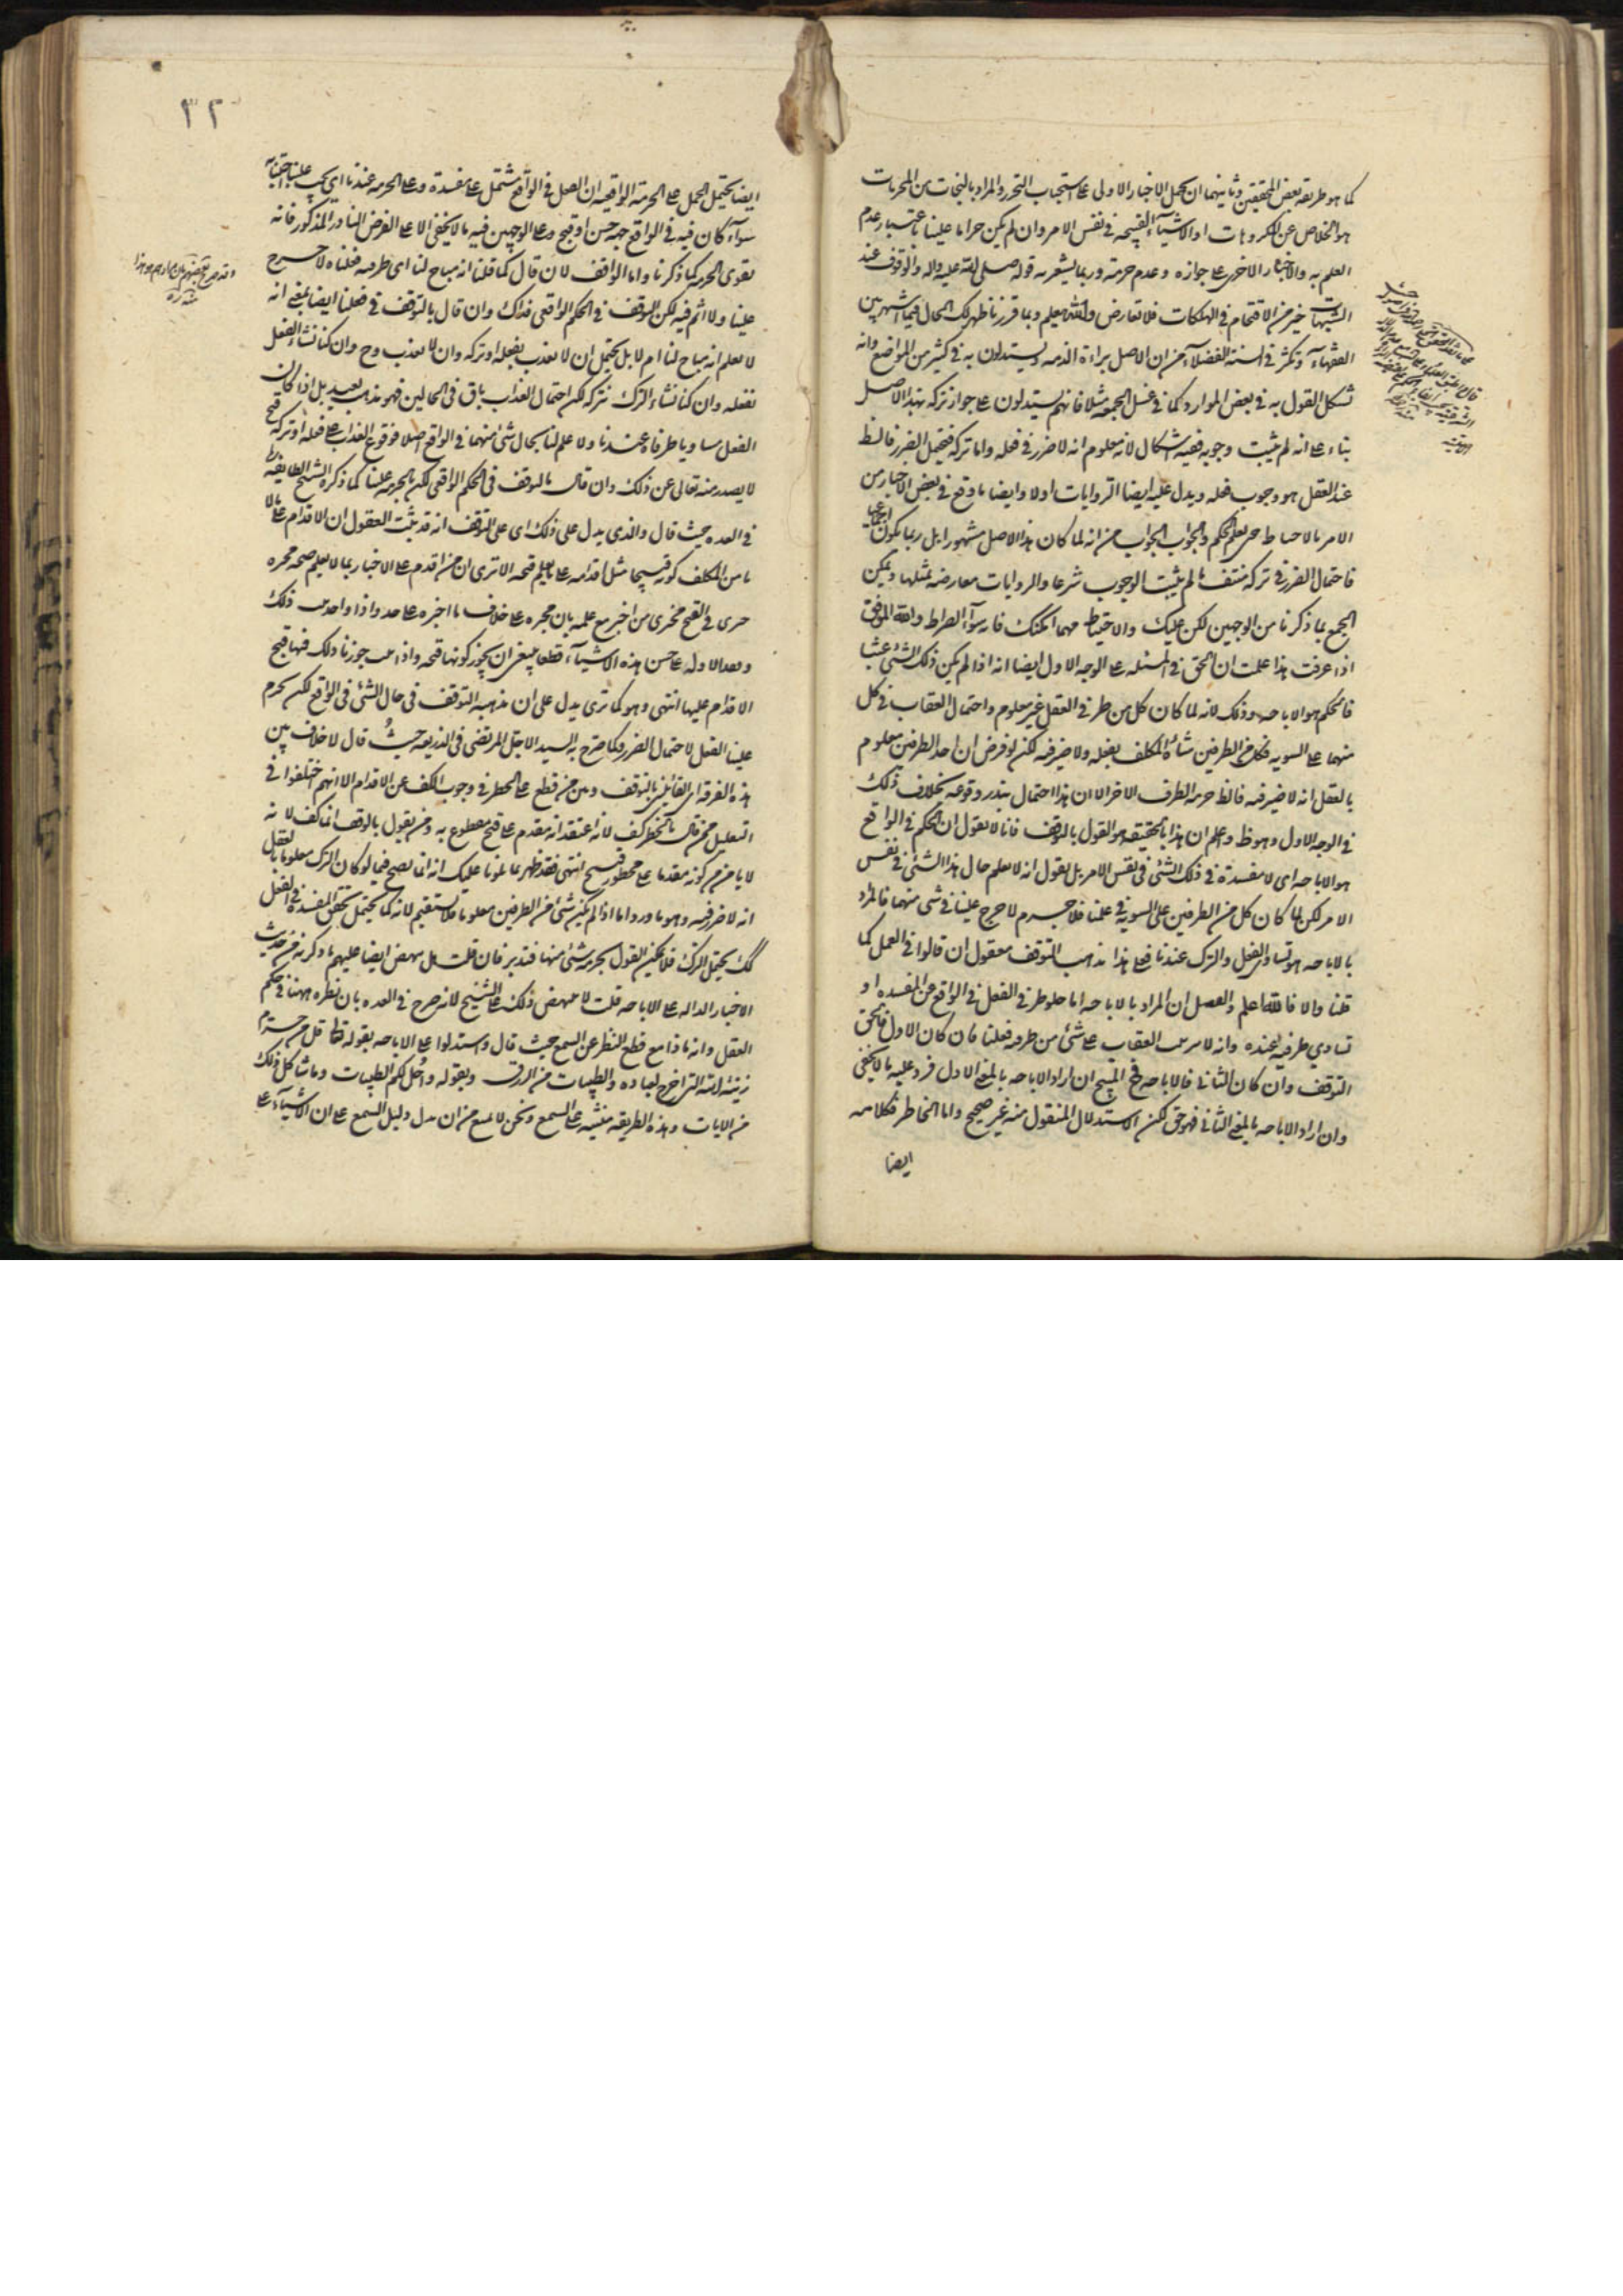 كما هو طريقه بعض المحققين وثانيهما ان يحمل الاخبار الاولى على استحباب التحرز والمراد بالنجات من المحرمات
هو الخلاص عن المكروهات او الاشياء القبيحه في نفس الامر وان لم يكن حراما علينا باعتبار عدم
العلم به والاخبار الاخرى على جوازه وعدم حرمته وربما يشعر به قوله صلى الله عليه واله والوقوف عند
الشبهات خير من الاقتحام في الهلكات فلا تعارض والله يعلم وبما قررنا ظهر لك الحال فيما اشتهر بين
الفقهاء وتكثر في السنة الفضلاء من ان الاصل براءة الذمه ويستدلون به في كثير من المواضع وانه
تشكل القول به في بعض الموارد كما في غسل الجمعه مثلا فانهم يستدلون على جواز تركه بهذا الاصل
بناء على انه لم يثبت وجوبه ففيه اشكال لانه معلوم انه لا ضرر في فعله واما تركه فيحتمل الضرر فالظ
عند العقل هو وجوب فعله ويدل عليه ايضا الروايات اولا وايضا ما وقع في بعض الاخبار من
الامر بالاحتياط حتى يعلم الحكم والجواب الجواب من انه لما كان هذا الاصل مشهورا بل ربما يكون اجماعيا
فاحتمال الضرر في تركه منتف ما لم يثبت الوجوب شرعا والروايات معارضه بمثلها ويمكن
الجمع بما ذكرنا من الوجهين لكن عليك والاحتياط مهما امكنك فانه سواء الصراط والله الموفق
اذا عرفت هذا علمت ان الحق في المسئله على الوجه الاول ايضا انه اذا لم يكن ذلك الشئ عبثا
فالحكم هو الاباحه وذلك لانه لما كان كل من طرفي العقل غير معلوم واحتمال العقاب في كل
منهما على السويه فكل من الطرفين شاءه المكلف يفعله ولا ضير فيه لكن لو فرض ان احد الطرفين معلوم
بالعقل انه لا ضير فيه فالظ حرمه الطرف الاخر الا ان هذا احتمال يندر وقوعه بخلاف ذلك
في الوجه الاول وهو ظ واعلم ان هذا بالحقيقه هو القول بالوقف فانا لا نقول ان الحكم في الواقع
هو الاباحه اى لا مفسدة في ذلك الشئ في نفس الامر بل نقول انه لا نعلم حال هذا الشئ في نفس
الامر لكن لما كان كل من الطرفين على السويه في علمنا فلا جرم لا حرج علينا في شئ منهما فالمراد
بالاباحه هو تساوى الفعل والترك عندنا فعلى هذا مذهب التوقف معقول ان قالوا في العمل كما
قلنا والا فالله اعلم والحاصل ان المراد بالاباحه اما خلو طرفي الفعل في الواقع عن المفسده او
تساوي طرفيه عنده وانه لا يترتب العقاب على شئ من طرفيه فعلنا فان كان الاول فالحق
التوقف وان كان الثاني فالاباحه فح المبيح ان اراد الاباحه بالمعنى الاول فرد عليه ما لا يخفى
وان اراد الاباحه بالمعنى الثاني فهو حق لكن الاستدلال المنقول منه غير صحيح واما الخاطر فكلامه
ايضا
٣٢
ايضا يحتمل الحمل على الحرمة الواقعيه اى ان الفعل في الواقع مشتمل على مفسدة وعلى الحرمه عندنا اى يجب علينا اجتنابه
سواء كان فيه في الواقع جهة حسن او قبح وعلى الوجهين فيه ما لا يخفى الا على الفرض النادر المذكور فانه
يقوى الحرمه كما ذكرنا واما الواقف لان قال كما قلنا انه مباح لنا اى طرفيه فعلناه لا حرج
علينا ولا اثم فيه لكن التوقف في الحكم الواقعى فذاك وان قال بالتوقف في فعلنا ايضا بمعنى انه
لا نعلم انه مباح لنا ام لا بل يحتمل ان لا نعذب بفعله او تركه وان لا نعذب وح وان كنا نشاء الفعل
نفعله وان كنا نشاء الترك نتركه لكن احتمال العذاب باق في الحالين فهو مذهب بعيد بل اذا كان
الفعل مساويا طرفاه عندنا ولا علم لنا بحال شئ منهما في الواقع اصلا فوقوع العذاب على فعله او تركه قبيح
لا يصدر منه تعالى عن ذلك وان قال بالتوقف في الحكم الواقعى لكن بالحرمه علينا كما ذكره الشيخ الطايفه
في العده حيث قال والذى يدل على ذلك اى على التوقف انه قد يثبت العقول ان الاقدام على ما لا
يامن المكلف كونه قبيحا مثل اقدامه على ما يعلم قبحه الا ترى ان من اقدم على الاخبار بما لا يعلم صحة مخبره
جرى في القبح مجرى من اخبر مع علمه بان مخبره على خلاف ما اخبره على حد واذا واحد ذلك
وفقدنا الادله على حسن هذه الاشياء قطعا ينبغى ان يجوز كونها قبيحه واذا جوزنا ذلك فيها قبح
الاقدام عليها انتهى وهو كما ترى يدل على ان مذهبه التوقف في حال الشئ في الواقع لكن يحرم
علينا الفعل لاحتمال الضرر وكما صرح به السيد الاجل المرتضى في الذريعه حيث قال لا خلاف بين
هذه الفرقه اى القائلين بالتوقف وبين من قطع على الحظر في وجوب الكف عن الاقدام الا انهم اختلفوا في
التعليل فمن قال بالحظر كف لانه اعتقد انه مقدم على قبح مقطوع به ومن يقول بالوقف انما كف لانه
لا يامن من كونه مقدما على محظور قبيح انتهى فقد ظهر مما تلونا عليك انه انما يصح فيما لو كان الترك معلوما بالعقل
انه لا ضرر فيه وهو ما ورد واما اذا لم يكن شئ من الطرفين معلوما فلا يستقيم لانه كما يحتمل تحقق المفسده في الفعل
كك يحتمل الترك فلا يمكن القول بحرمه شئ منها فتدبر فان قلت هل ينهض ايضا عليهم ما ذكرته من حديث
الاخبار الداله على الاباحه قلت لا ينهض ذلك على الشيخ لانه صرح في العده بان نظره ههنا في حكم
العقل وانه ماذا مع قطع النظر عن السمع حيث قال واستدلوا على الاباحه بقوله تعالى قل من حرم
زينة الله التى اخرج لعباده والطيبات من الرزق وبقوله واحل لكم الطيبات وما شاكل ذلك
من الايات وهذه الطريقه مبنيه على السمع ونحن لا نمنع من ان يدل دليل السمع على ان الاشياء على